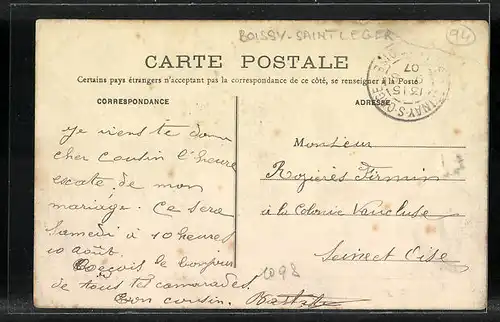 BOISSY-SAINT LEGER
94
CARTE POSTALE
Certains pays étrangers n'acceptant pas la correspondance de ce côté, se renseigner à la Poste
CORRESPONDANCE
ADRESSE
07
Je viens te donn
cher cousin l'heure
escate de mon
mariage. Ce sera
Samedi à 10 heures
10 Août.
Reçois le bonjour
de tous tes camarades
Ton cousin.
Monsieur
Rozières Firmin
à la Colonie Vaucluse
Seine et Oise
1098